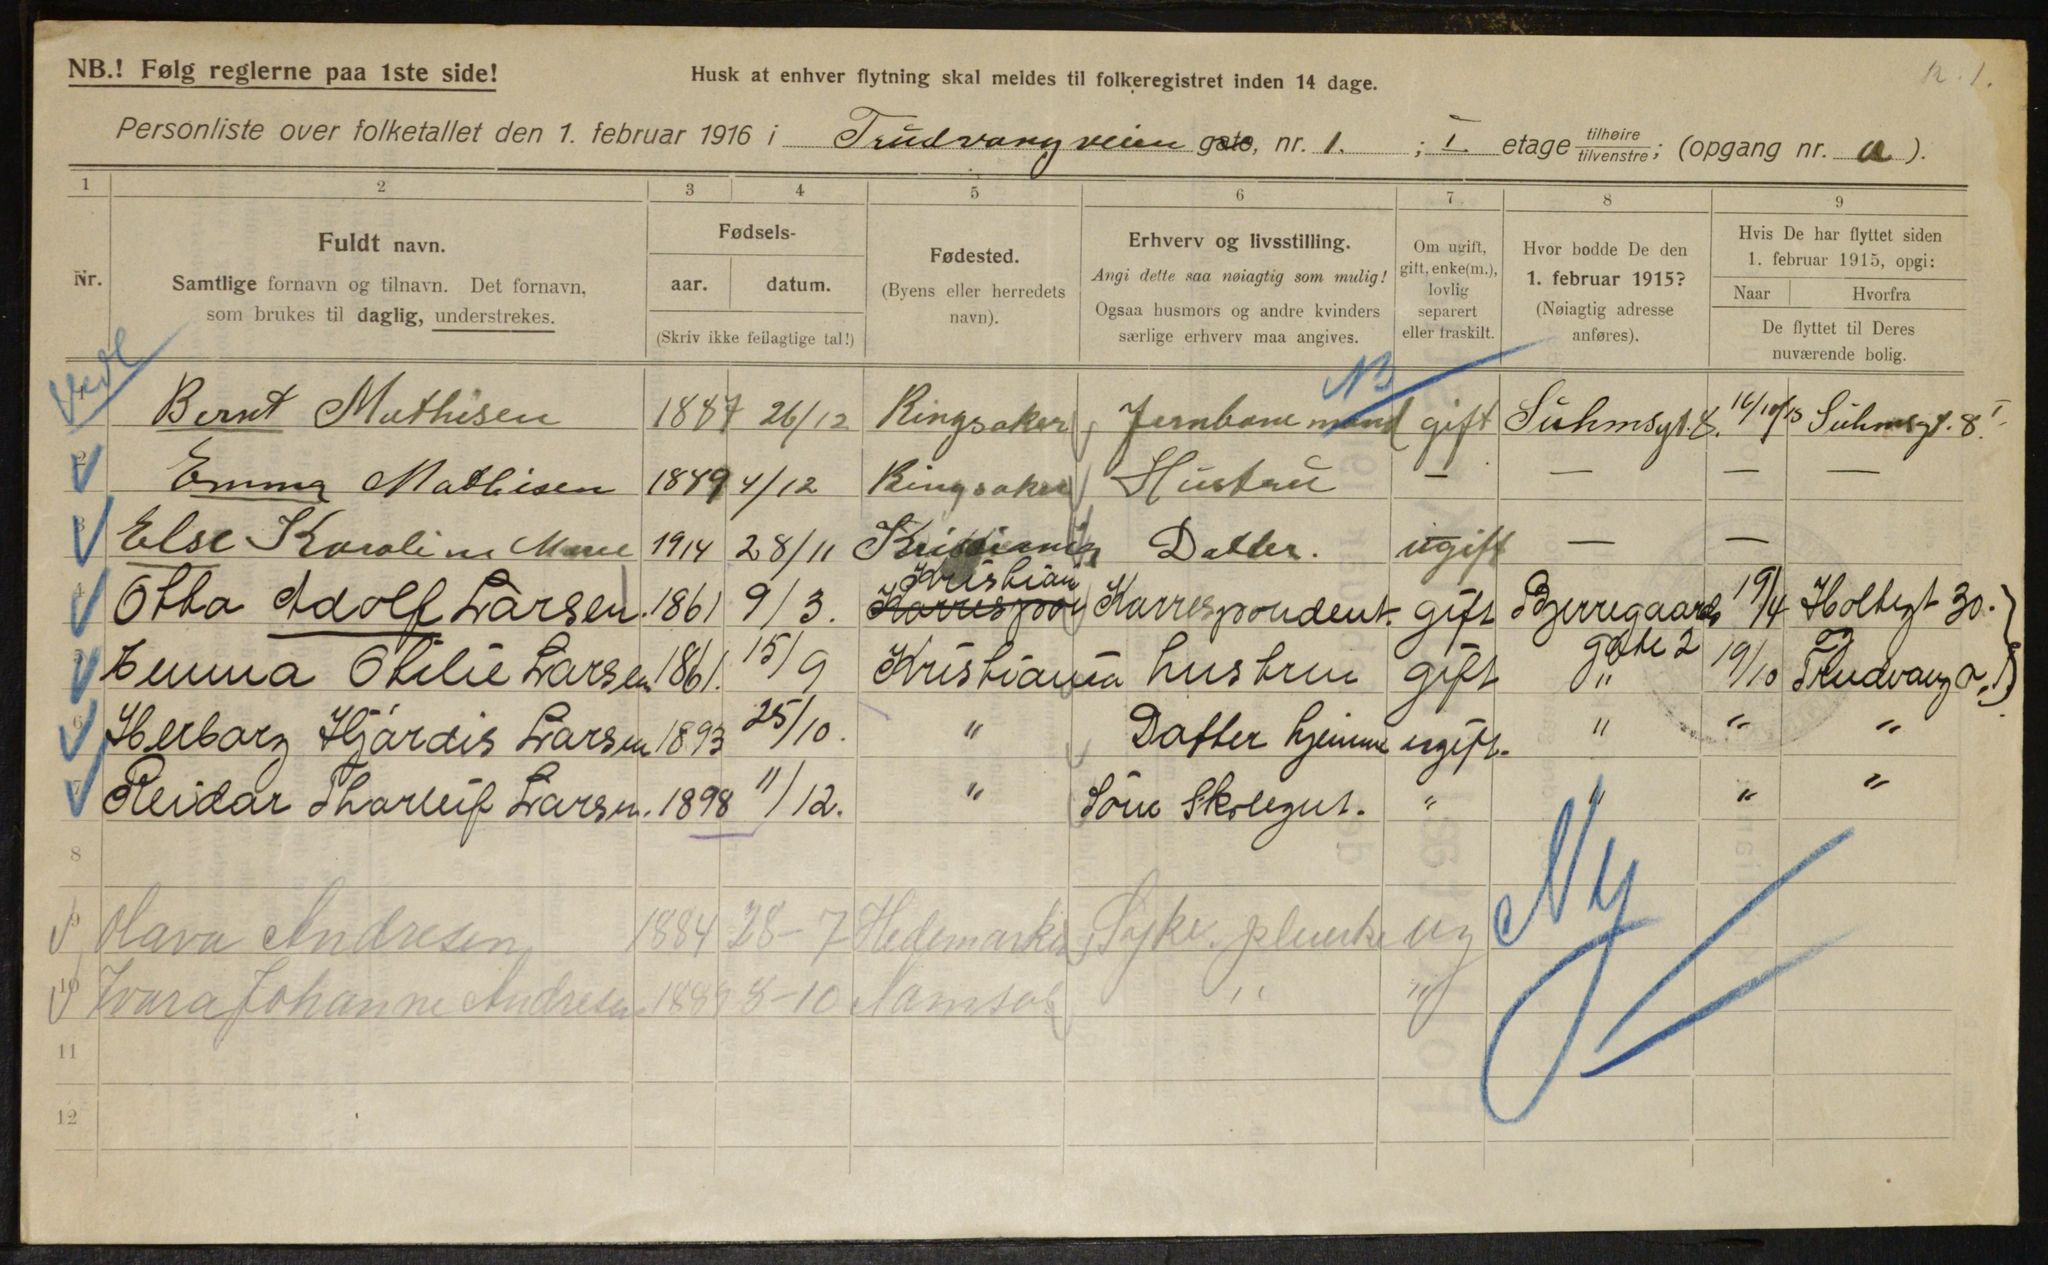 NB.! Følg reglerne paa 1ste side!
Husk at enhver flytning skal meldes til folkeregistret inden 14 dage.
Personliste over folketallet den 1. februar 1916 i Trudvangveien gate, nr. 1. ; I. etage tilhøire tilvenstre; (opgang nr. a ).
1 2 3 4 5 6 7 8 9
Nr.
Fuldt navn.
Samtlige fornavn og tilnavn. Det fornavn,
som brukes til daglig, understrekes.
Fødsels-
aar. datum.
(Skriv ikke feilagtige tal!)
Fødested.
(Byens eller herredets
navn).
Erhverv og livsstilling.
Angi dette saa nøiagtig som mulig!
Ogsaa husmors og andre kvinders
særlige erhverv maa angives.
Om ugift,
gift, enke(m.),
lovlig
separert
eller fraskilt.
Hvor bodde De den
1. februar 1915?
(Nøiagtig adresse
anføres).
Hvis De har flyttet siden
1. februar 1915, opgi:
Naar Hvorfra
De flyttet til Deres
nuværende bolig.
NB
Bernt Mathisen 1887 26/12 Ringsaker Jernbanemand gift Suhmsgt. 8. 16/10/15 Suhmsgt. 8. I
2 Emma Mathisen 1889 4/12 Ringsaker Hustru — — — —
3 Else Karoline 1914 28/11 Kristiania Datter. ugift — —
4 Otto Adolf Larsen. 1861 9/3. Kristian Korrespondent. gift Bjerregaards 19/4 Holtegt 30.
Emma Otilie Larsen 1861. 15/9 Kristiania hustru gift gate 2 " 19/10 Trudvang a. 1
6 Herborg Hjørdis Larsen 1893 25/10. " Datter hjemme ugift. " " "
7 Reidar Thorleif Larsen. 1898 11/12. " Søn Skolegut. " " " "
8
9 Olava Andresen 1884 28-7 Hedemarken Sykepleierske ug
Ny
10 Johanne Andresen 8-10 Namsos " "
11
12